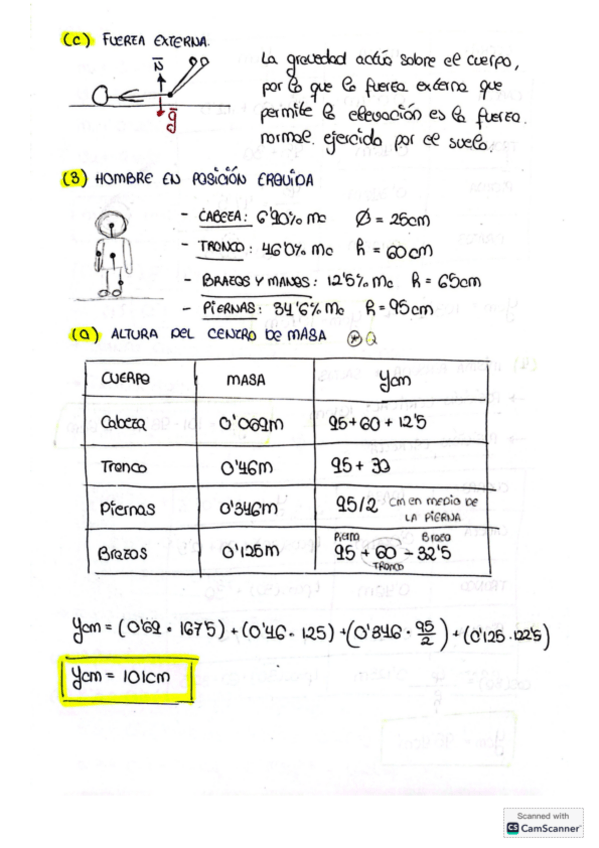 (c) FUERZA EXTERNA.
N
g
La gravedad actúa sobre el cuerpo,
por lo que la fuerza externa que
permite la elevación es la fuerza
normal ejercida por el suelo.
(3) HOMBRE EN POSICIÓN ERGUIDA
- CABEZA: 6'90% mc Ø = 25cm
- TRONCO: 46'0% mc h = 60cm
- BRAZOS Y MANOS: 12'5% mc h = 65cm
- PIERNAS: 34'6% mc h = 95cm
(a) ALTURA DEL CENTRO DE MASA
CUERPO MASA Ycm
Cabeza 0'069m 95+60+12'5
Tronco 0'46m 95+30
Piernas 0'346m 95/2 cm en medio de
LA PIERNA
Brazos 0'125m 95 + 60 - 32'5
Pierna Brazo
TRONCO
Ycm = (0'69 · 167'5) + (0'46 · 125) + (0'346 · 95/2) + (0'125 · 122'5)
Ycm = 101cm
Scanned with
CS CamScanner